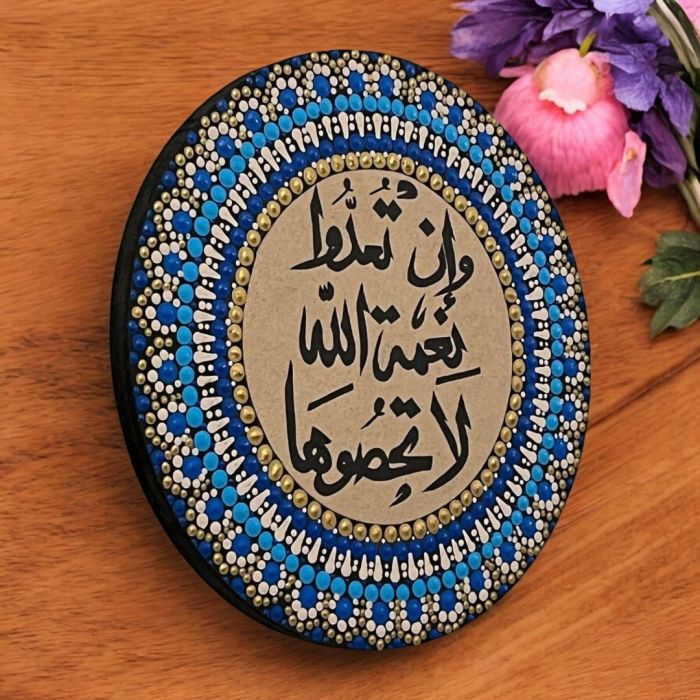 وَإِن تَعُدُّوا
نِعْمَةَ اللَّه
لَا تُحْصُوهَا